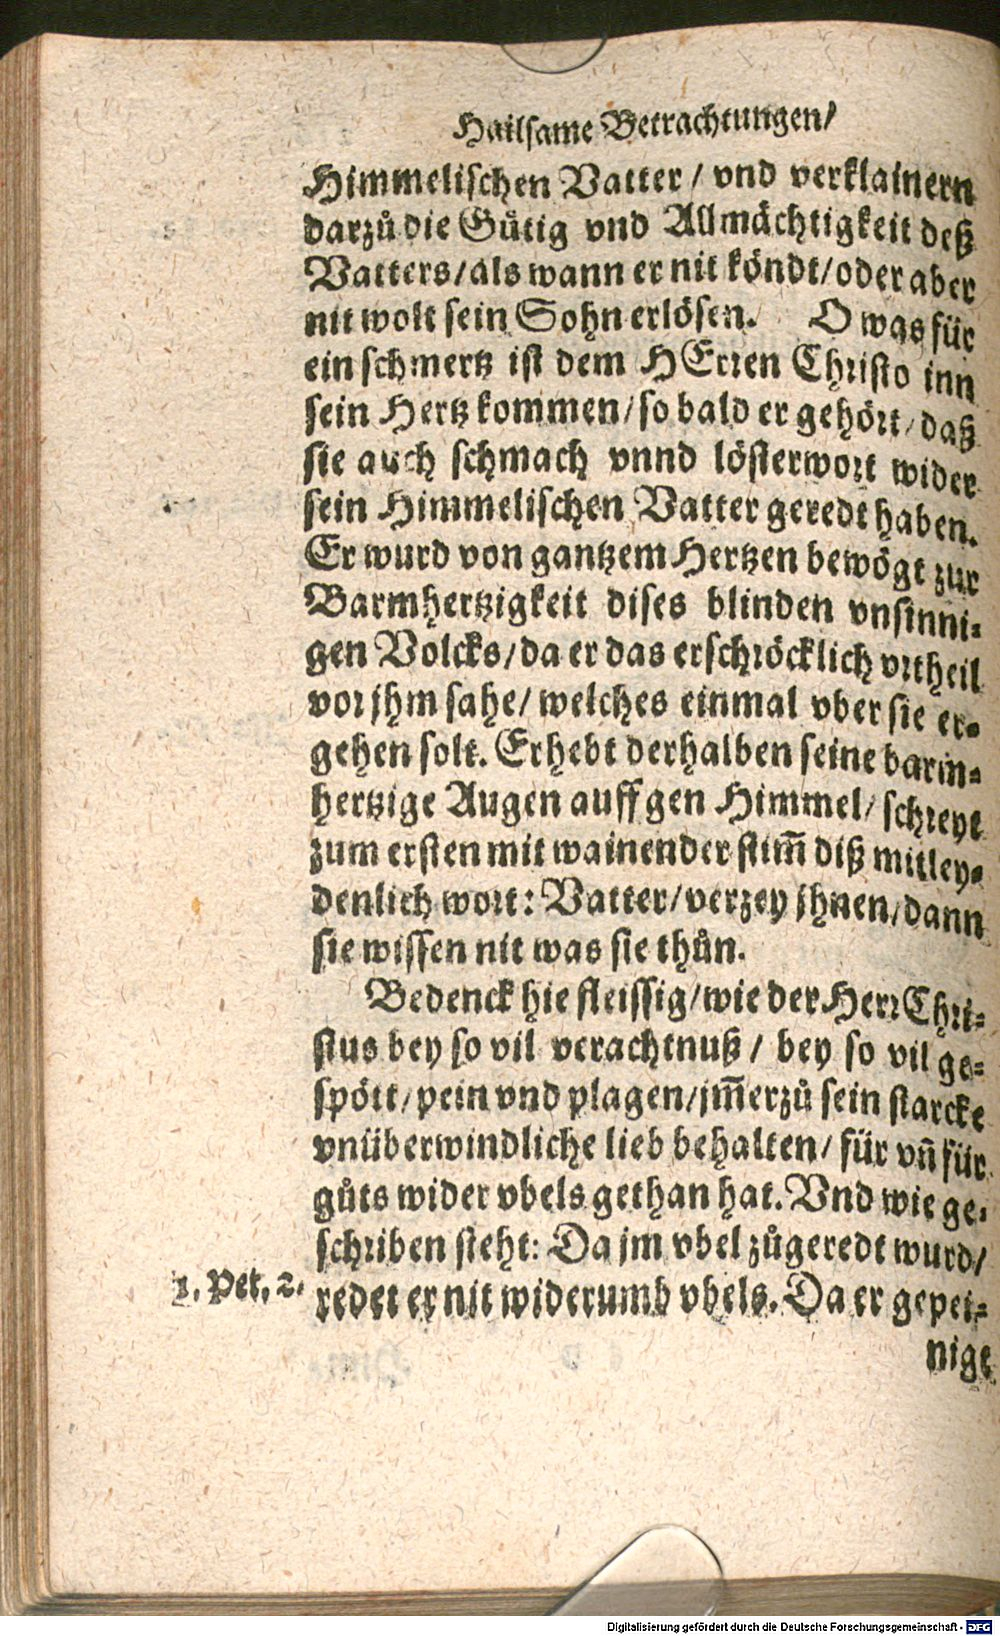 Hailsame Betrachtungen/
Himmelischen Vatter / vnd verklainern
darzů die Gůtig vnd Allmächtigkeit deß
Vatters/als wann er nit köndt/oder aber
nit wolt sein Sohn erlösen. O was für
ein schmertz ist dem HErren Christo inn
sein Hertz kommen/so bald er gehört/daß
sie auch schmach vnnd lösterwort wider
sein Himmelischen Vatter geredt haben.
Er wurd von gantzem Hertzen bewögt zur
Barmhertzigkeit dises blinden vnsinni-
gen Volcks/da er das erschröcklich vrtheil
vor jhm sahe/ welches einmal vber sie er-
gehen solt. Erhebt derhalben seine barm-
hertzige Augen auff gen Himmel/ schreyt
zum ersten mit wainender stim̃ diß mitley-
denlich wort: Vatter/verzey jhnen/dann
sie wissen nit was sie thůn.
Bedenck hie fleissig/wie der Herr Chri-
stus bey so vil verachtnuß/ bey so vil ge-
spött/pein vnd plagen/jm̃erzů sein starcke
vnüberwindliche lieb behalten/ für vñ für
gůts wider vbels gethan hat. Vnd wie ge-
schriben steht: Da jm vbel zůgeredt wurd/
1. Pet. 2. redet er nit widerumb vbels. Da er gepei-
nigt
Digitalisierung gefördert durch die Deutsche Forschungsgemeinschaft - DFG